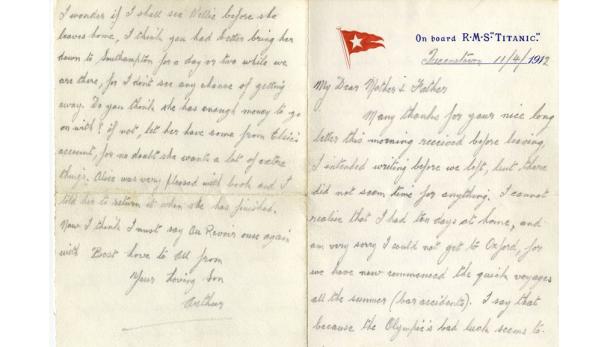 On board R·M·S·"TITANIC."
Queenstown 11/4/1912
My Dear Mother & Father
Many thanks for your nice long
letter this morning received before leaving.
I intended writing before we left, but there
did not seem time for anything. I cannot
realise that I had ten days at home, and
am very sorry I could not get to Oxford, for
we have now commenced the quick voyages
all the summer (bar accidents). I say that
because the Olympic's bad luck seems to
I wonder if I shall see Nellie before she
leaves home, I think you had better bring her
down to Southampton for a day or two while we
are there, for I don't see any chance of getting
away. Do you think she has enough money to go
on with? if not, let her have some from Elsie's
account, for no doubt she wants a lot of extra
things. Alice was very pleased with book and I
told her to return it when she has finished.
Now I think I must say Au Revoir once again
with Best love to all from
Your Loving Son
Arthur